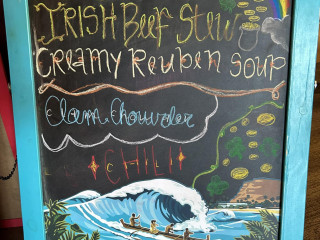 IRISH Beef Stew
Creamy Reuben Soup
Clam Chowder
CHILI